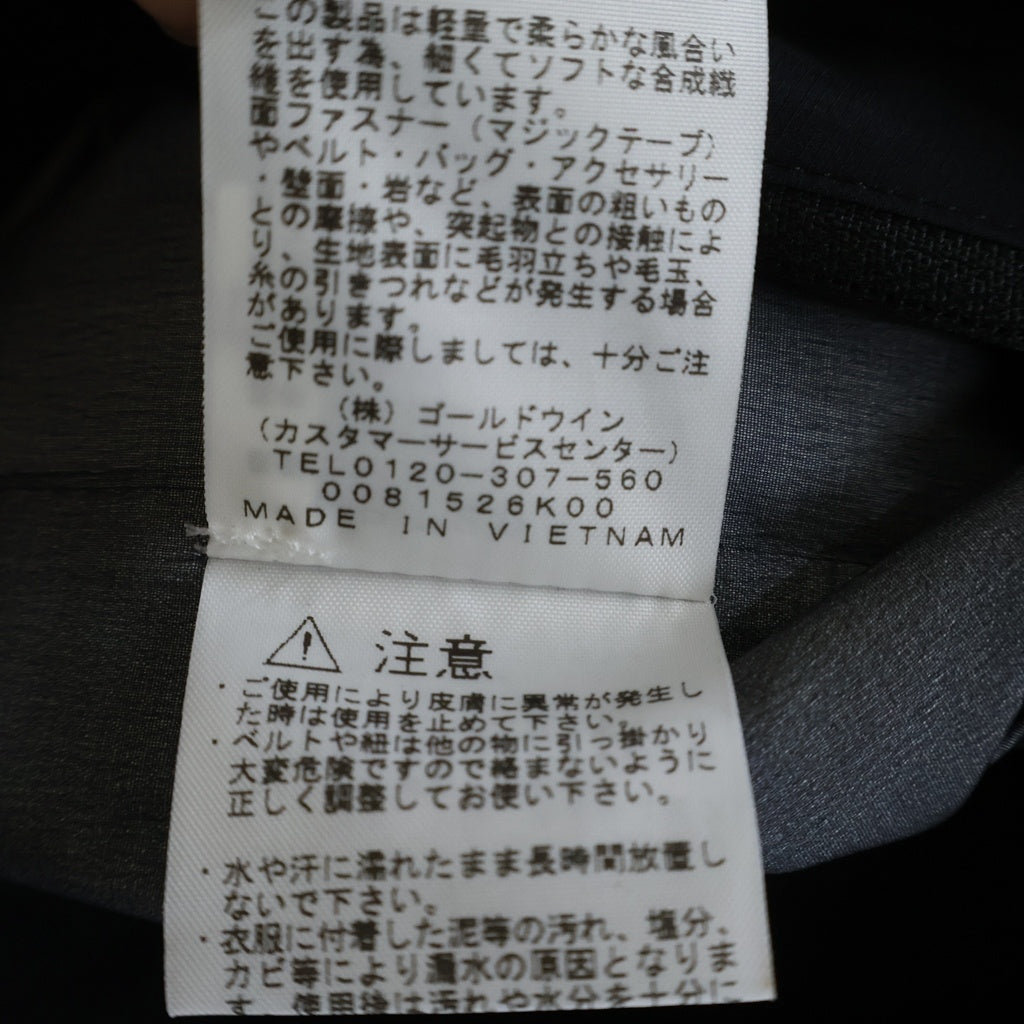 この製品は軽量で柔らかな風合い
を出す為、細くてソフトな合成繊
維を使用しています。
面ファスナー（マジックテープ）
やベルト・バッグ・アクセサリー
・壁面・岩など、表面の粗いもの
との摩擦や、突起物との接触によ
り、生地表面に毛羽立ちや毛玉、
糸の引きつれなどが発生する場合
があります。
ご使用に際しましては、十分ご注
意下さい。
（株）ゴールドウイン
（カスタマーサービスセンター）
TEL0120-307-560
0081526K00
MADE IN VIETNAM
注意
・ご使用により皮膚に異常が発生し
た時は使用を止めて下さい。
・ベルトや紐は他の物に引っ掛かり
大変危険ですので絡まないように
正しく調整してお使い下さい。
・水や汗に濡れたまま長時間放置し
ないで下さい。
・衣服に付着した泥等の汚れ、塩分、
カビ等により漏水の原因となりま
す。使用後は汚れや水分を十分に